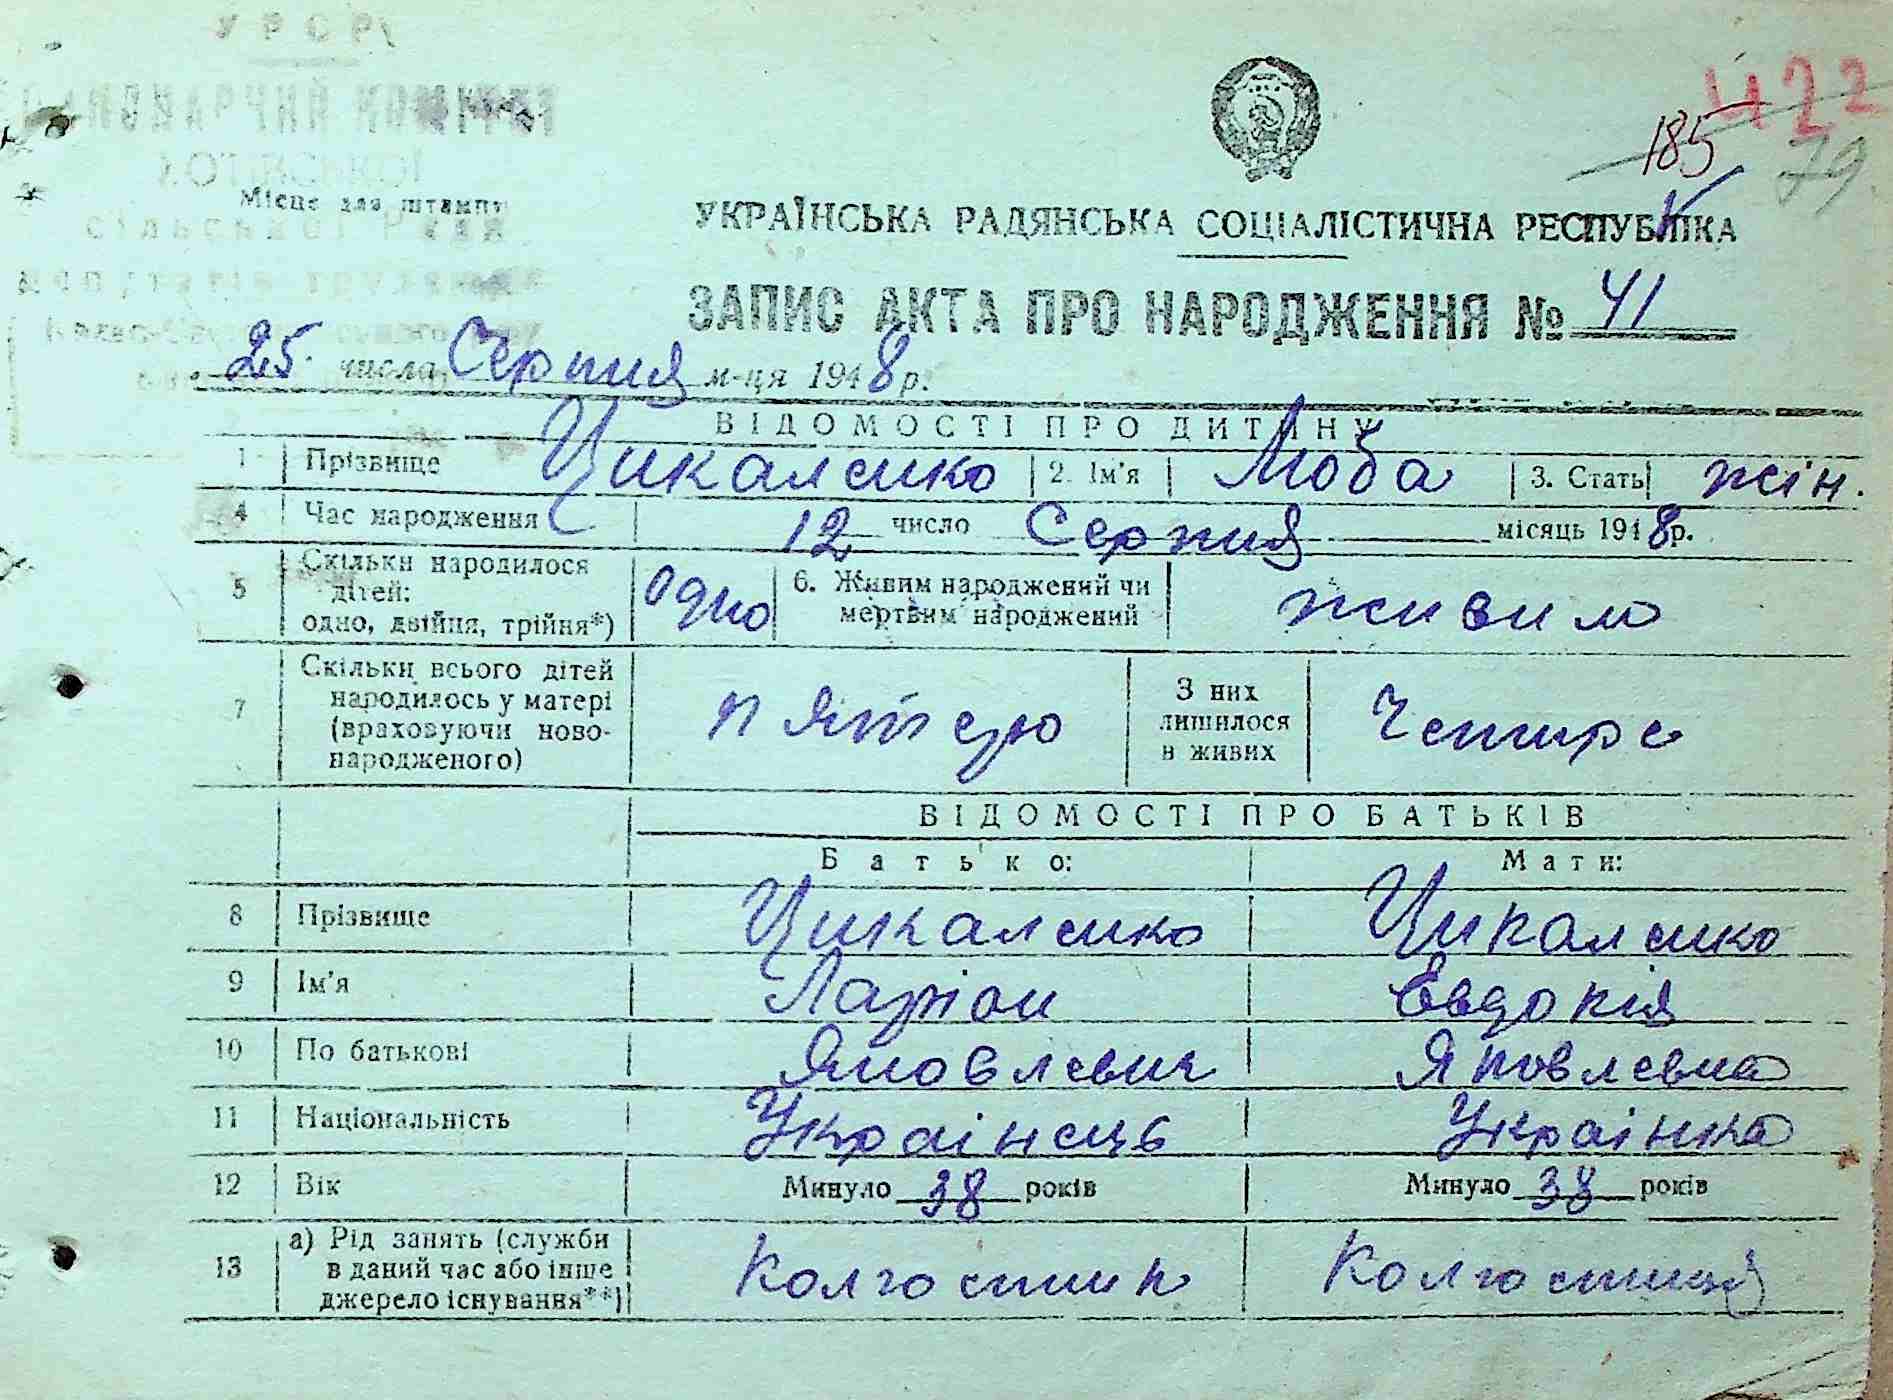 УРСР
422
185
79
Місце для штампу
сільської Ради
УКРАЇНСЬКА РАДЯНСЬКА СОЦІАЛІСТИЧНА РЕСПУБЛІКА
ЗАПИС АКТА ПРО НАРОДЖЕННЯ № 41
25 числа Серпня м-ця 1948 р.
ВІДОМОСТІ ПРО ДИТИНУ
1 Прізвище Цикаленко 2. Ім'я Люба 3. Стать жін.
4 Час народження 12 число Серпня місяць 1948 р.
5 Скільки народилося дітей: одно, двійня, трійня*) Одно 6. Живим народжений чи мертвим народжений живим
7 Скільки всього дітей народилось у матері (враховуючи новонародженого) З них лишилося в живих Чотире
ВІДОМОСТІ ПРО БАТЬКІВ
Батько: Мати:
8 Прізвище Цикаленко Цикаленко
9 Ім'я Ларіон Євдокія
10 По батькові Яковлевич Яковлевна
11 Національність Українець Українка
12 Вік Минуло 38 років Минуло 38 років
13 а) Рід занять (служби в даний час або інше джерело існування**) Колгоспник Колгоспниця